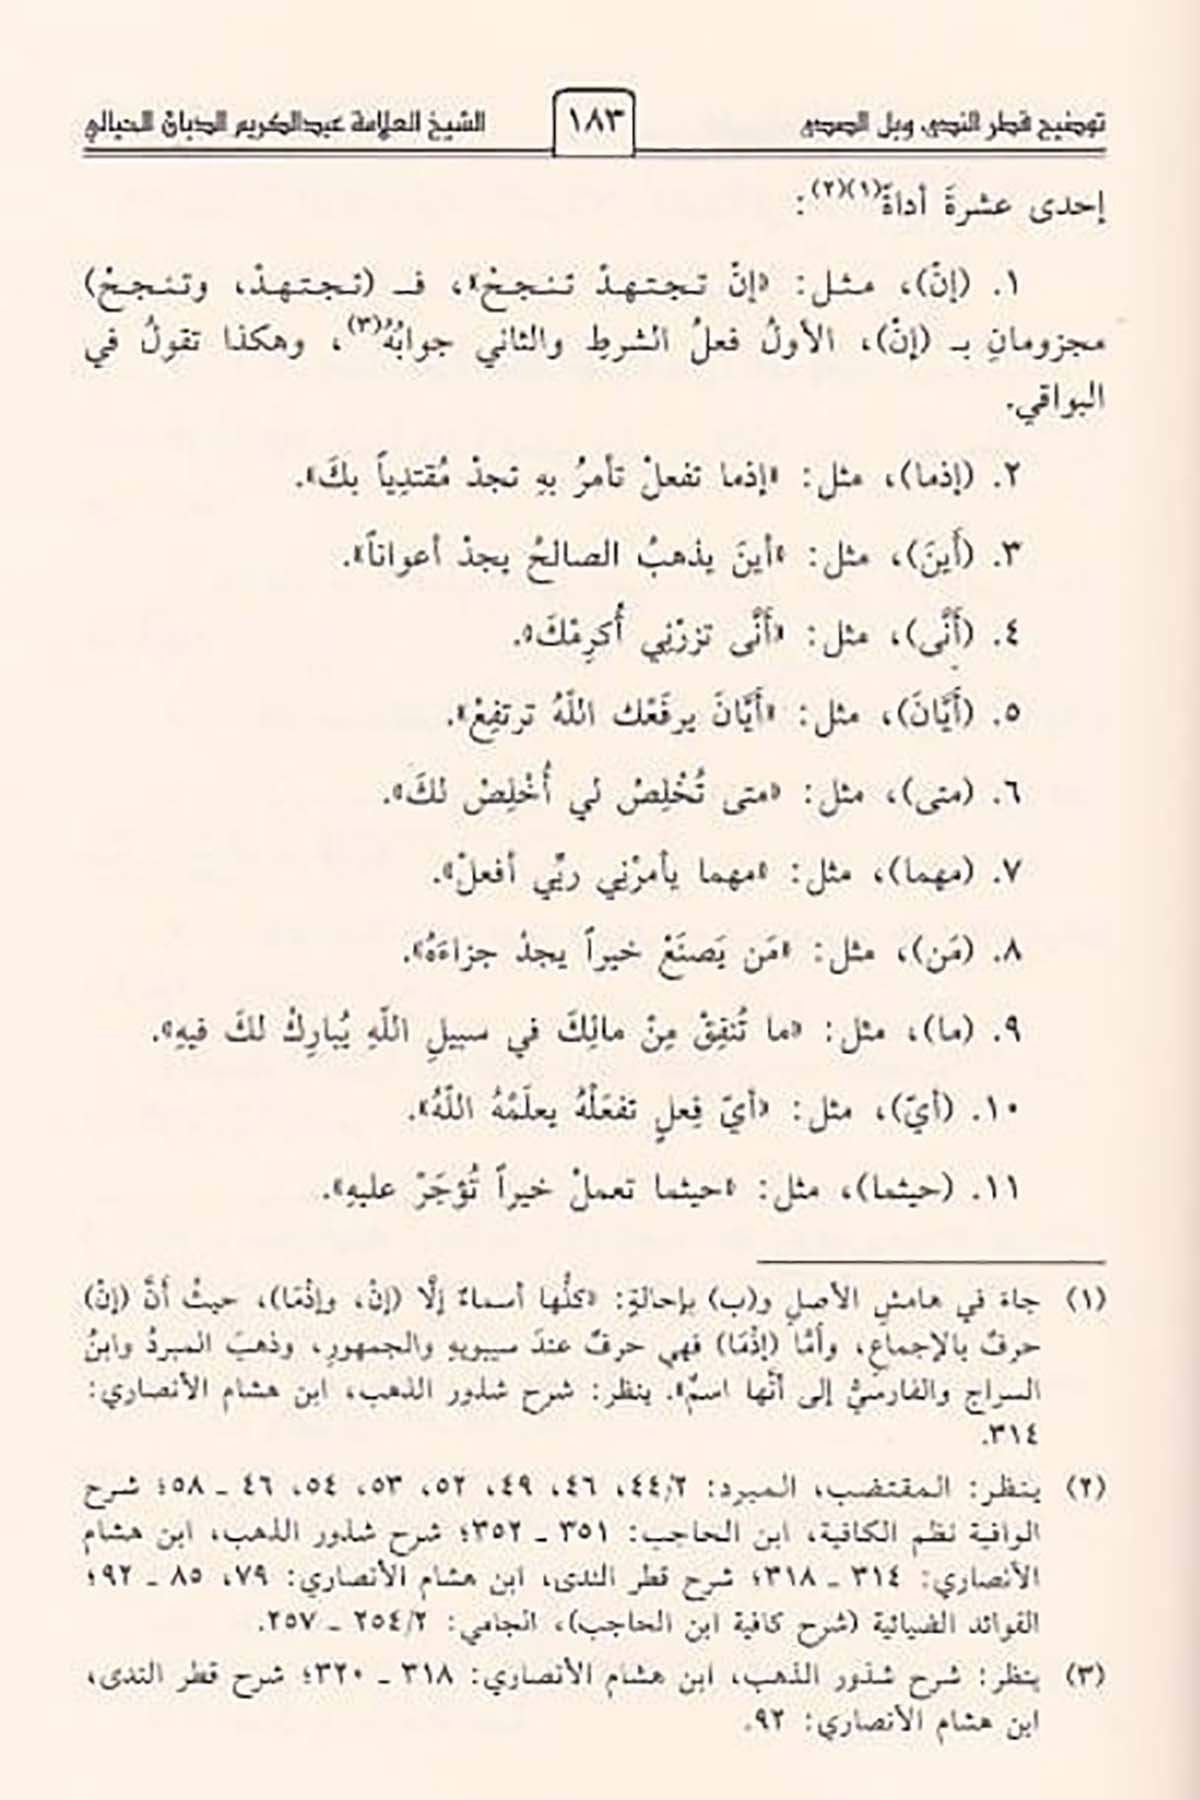 توضيح قطر الندى وبل الصدى ١٨٣ الشيخ العلامة عبدالكريم الدبان الحيالي
إحدى عشرةَ أداةً(١)(٢):
١. (إنْ)، مثل: «إنْ تجتهدْ تنجحْ»، فـ (تجتهدْ، وتنجحْ)
مجزومانِ بـ (إنْ)، الأولُ فعلُ الشرطِ والثاني جوابُهُ(٣)، وهكذا تقولُ في
البواقي.
٢. (إذما)، مثل: «إذما تفعلْ تأمرُ بهِ تجدْ مُقتدِياً بكَ».
٣. (أَينَ)، مثل: «أينَ يذهبُ الصالحُ يجدْ أعواناً».
٤. (أَنَّى)، مثل: «أَنَّى تزرْنِي أُكرِمْكَ».
٥. (أَيَّانَ)، مثل: «أَيَّانَ يرفَعْك اللّهُ ترتفِعْ».
٦. (متى)، مثل: «متى تُخْلِصْ لي أُخْلِصْ لكَ».
٧. (مهما)، مثل: «مهما يأمرْنِي ربِّي أفعلْ».
٨. (مَن)، مثل: «مَن يَصنَعْ خيراً يجدْ جزاءَهُ».
٩. (ما)، مثل: «ما تُنفِقْ مِنْ مالِكَ في سبيلِ اللّهِ يُبارِكْ لكَ فيهِ».
١٠. (أيّ)، مثل: «أيّ فِعلٍ تفعَلْهُ يعلَمْهُ اللّهُ».
١١. (حيثما)، مثل: «حيثما تعملْ خيراً تُؤجَرْ عليهِ».
(١) جاءَ في هامشِ الأصلِ و(ب) بإحالةٍ: «كلُّها أسماءٌ إلَّا (إنْ، وإذْمَا)، حيثُ أنَّ (إنْ)
حرفٌ بالإجماعِ، وأمَّا (إذْمَا) فهي حرفٌ عندَ سيبويهِ والجمهورِ، وذهبَ المبردُ وابنُ
السراج والفارسيُّ إلى أنَّها اسمٌ». ينظر: شرح شذور الذهب، ابن هشام الأنصاري:
٣١٤.
(٢) ينظر: المقتضب، المبرد: ٤٤/٢، ٤٦، ٤٩، ٥٢، ٥٣، ٥٤، ٤٦ ـ ٥٨؛ شرح
الوافية نظم الكافية، ابن الحاجب: ٣٥١ ـ ٣٥٢؛ شرح شذور الذهب، ابن هشام
الأنصاري: ٣١٤ ـ ٣١٨؛ شرح قطر الندى، ابن هشام الأنصاري: ٧٩، ٨٥ ـ ٩٢؛
الفوائد الضيائية (شرح كافية ابن الحاجب)، الجامي: ٢٥٤/٢ ـ ٢٥٧.
(٣) ينظر: شرح شذور الذهب، ابن هشام الأنصاري: ٣١٨ ـ ٣٢٠؛ شرح قطر الندى،
ابن هشام الأنصاري: ٩٢.